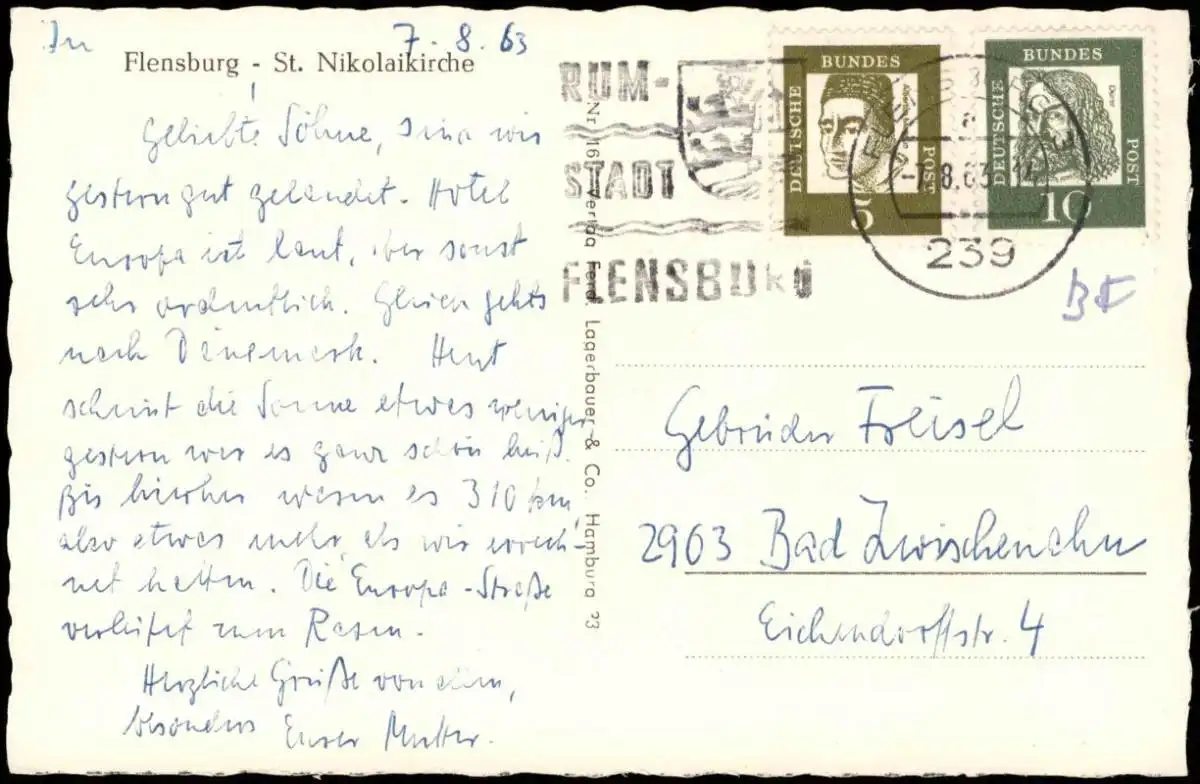 In 7. 8. 63
Flensburg - St. Nikolaikirche
Geliebte Söhne, sind wir
gestern gut gelandet. Hotel
Europa ist laut, aber sonst
sehr ordentlich. Gleich gehts
nach Dänemark. Heut
scheint die Sonne etwas weniger
gestern war es ganz schön heiß.
Bis hierher waren es 310 km,
also etwas mehr, als wir errech-
net hatten. Die Europa-Straße
verleitet zum Rasen.
Herzliche Grüße von allem,
besonders Eurer Mutter.
Nr. 16 Verlag Ferd. Lagerbauer & Co., Hamburg 23
RUM-
STADT
FLENSBURG
DEUTSCHE BUNDES POST
5
DEUTSCHE BUNDES POST
Dürer
10
-7.8.63
239
Gebrüder Freisel
2903 Bad Zwischenahn
Eichendorffstr. 4